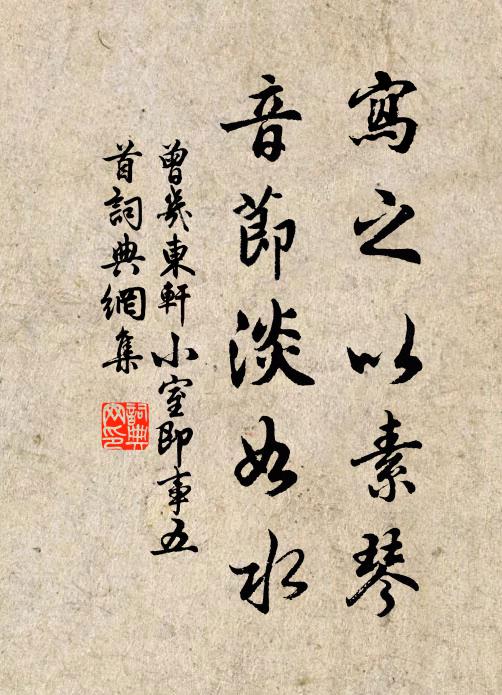 寫之以素琴
音節淡如水
曾幾東軒小室即事五
首詞典網集
詞典網印